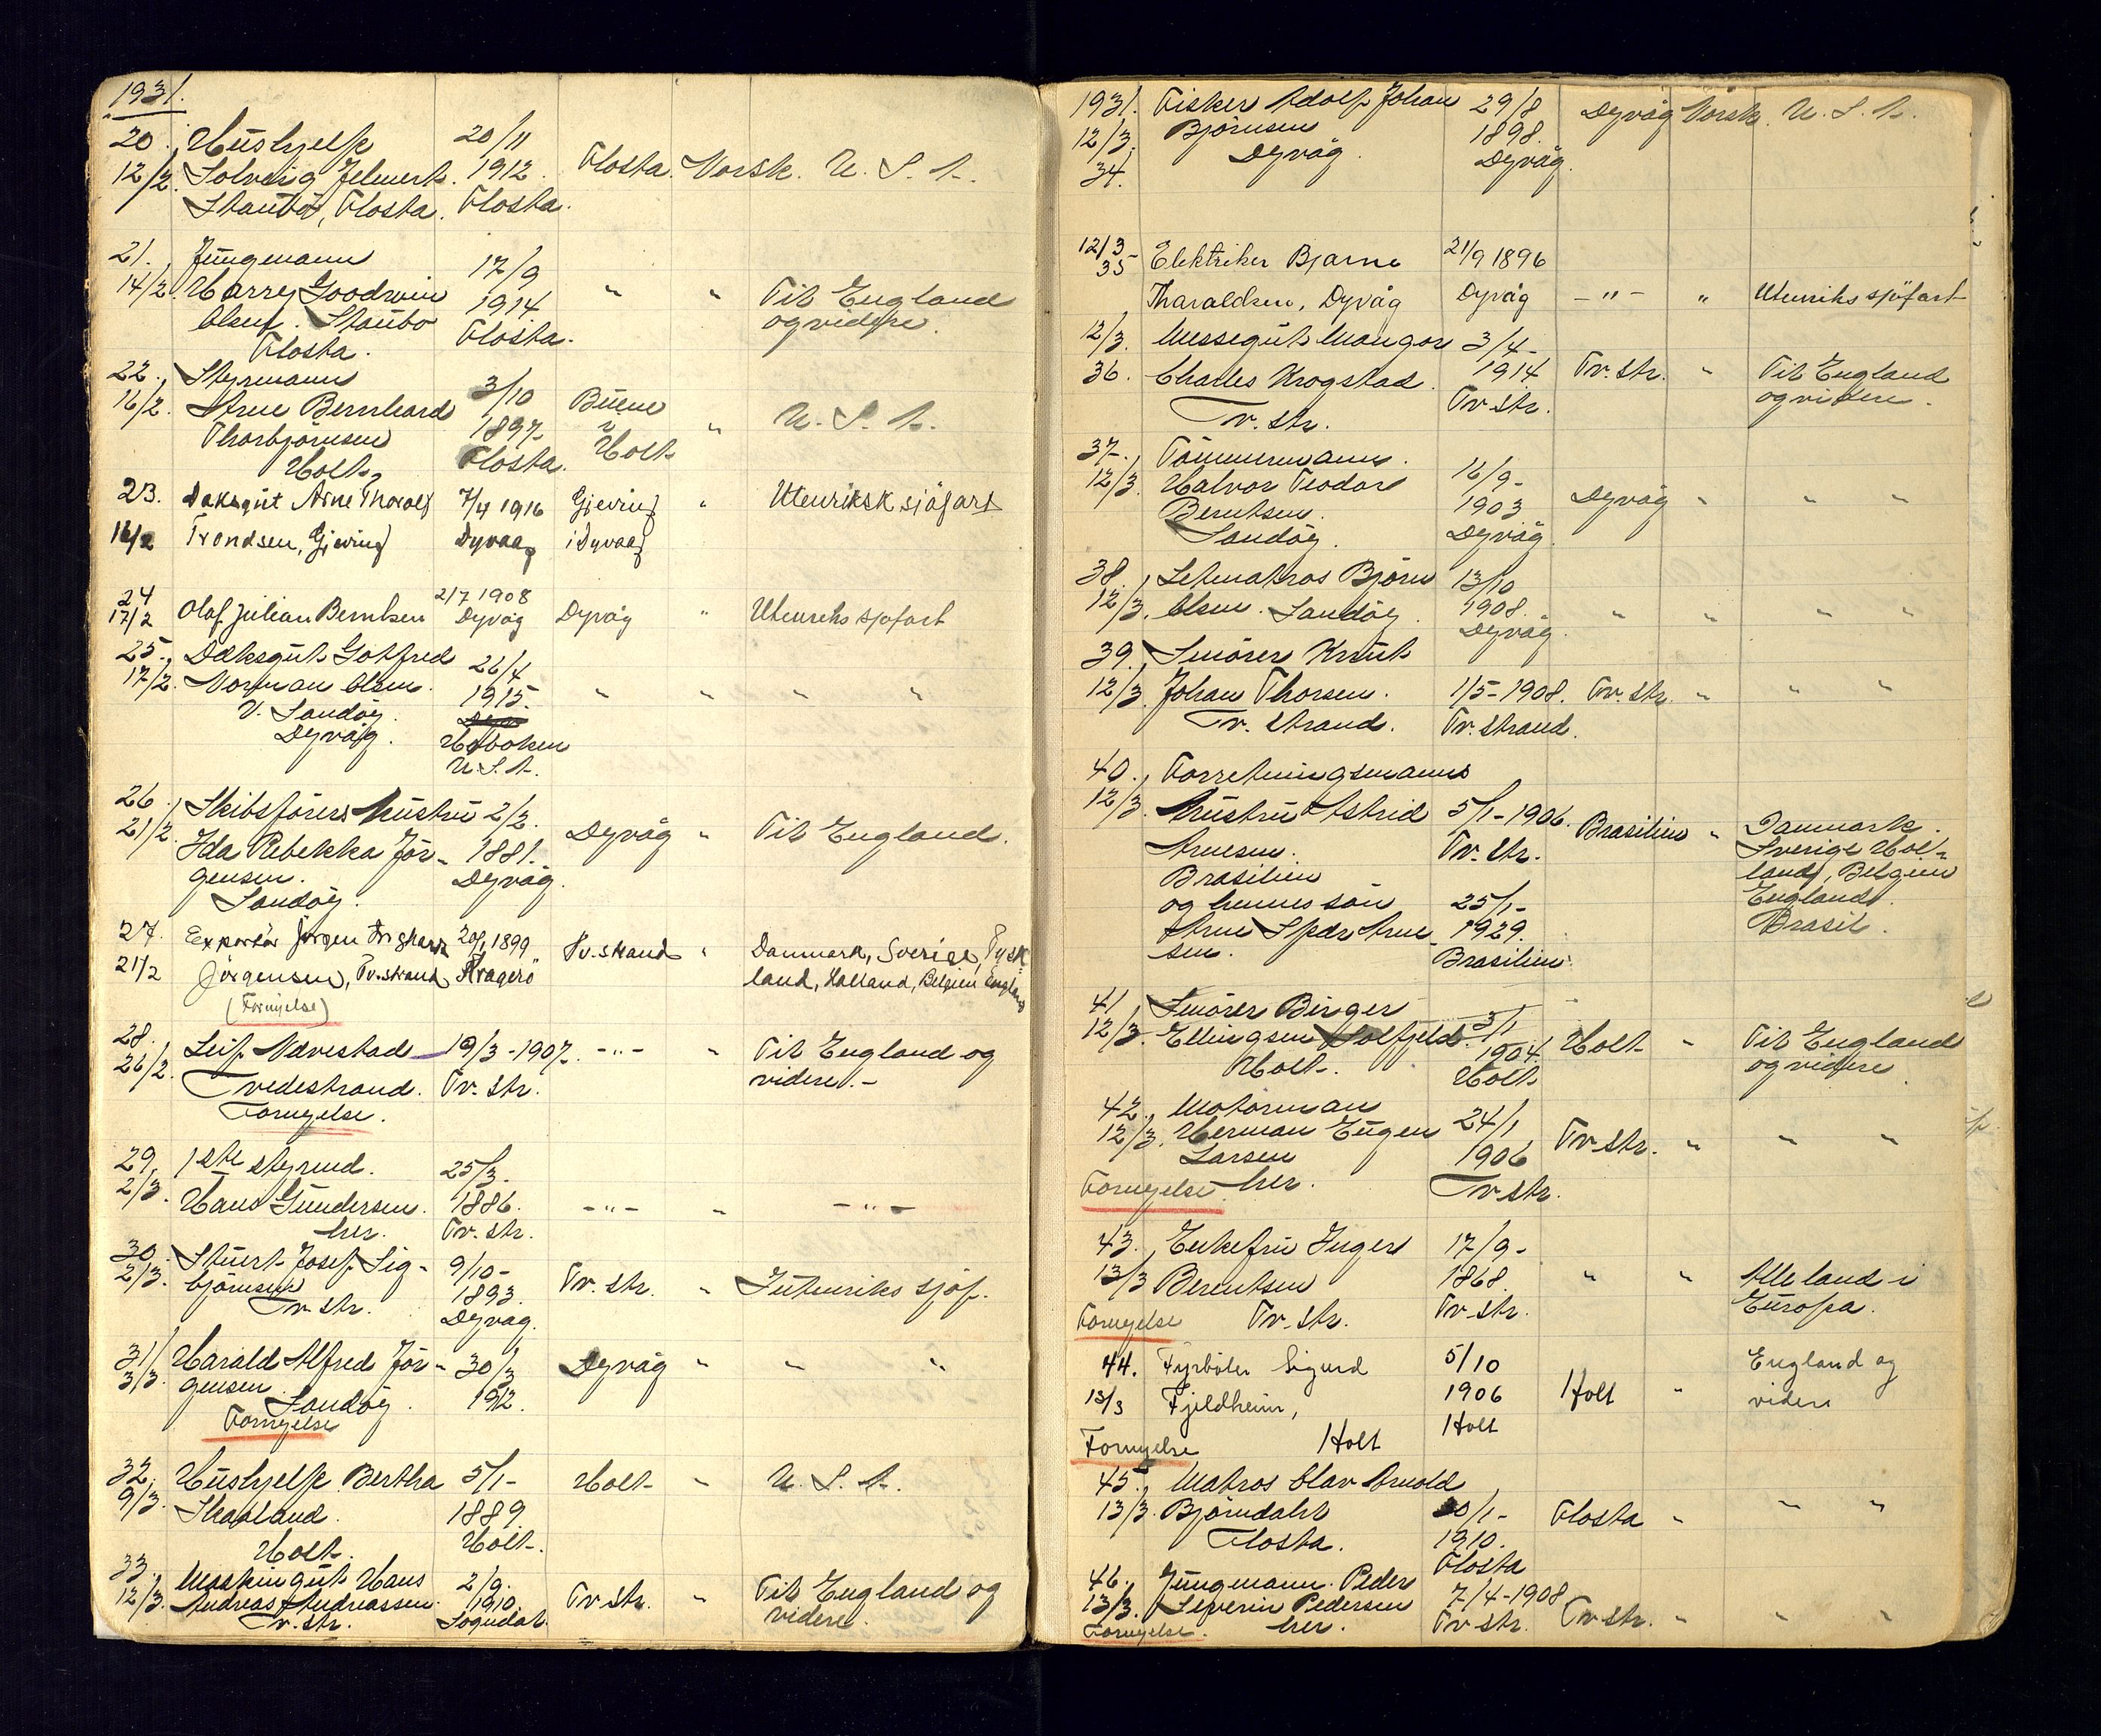 1931.
20. Hüshjelp 20/11
12/2. Solveig Jelmert. 1912. Flosta. Norsk. U. S. A.
Staubø, Flosta. Flosta.
21. Jüngmann 17/9
14/2. Harry Goodwin 1914 " " Til England
Olsen. Staubo Flosta. og videre.
Flosta.
22. Styrmann 3/10 Büene
16/2. Arne Bernhard 1897 i " U. S. A.
Thorbjörnsen Flosta. Holt
Holt
23. Daksgüt Arne Thorolf 7/4 1916 Gjeving " Utenriksk sjöfart
16/2 Trondsen, Gjeving Dyvaag i Dyvaag
24 21/7 1908
17/2 Olaf Julian Berntsen Dyvåg Dyvåg " Utenriks sjøfart
25. Daksgüt Gotfred 26/4
17/2. Norman Olsen. 1915. " " " "
V. Sandöy.
Dyvåg. Hoboken
U.S.A.
26. Skibsförers hüstrü 2/2.
21/2. Ida Rebekka Jör- 1881. Dyvåg " Til England.
gensen. Dyvåg.
Sandöy.
27. Exportör Jörgen 20/1 1899 Tv.strand " Danmark, Sverige, Tysk
21/2 Jörgensen, Tv.strand Kragerö land, Holland, Belgien England
(Fornyelse)
28. Leif Nævestad 19/3-1907. -"- " Til England og
26/2. Tvedestrand. Tv. str. videre.-
Fornyelse.
29. 1ste styrmd. 25/3.
2/3. Hans Gündersen. 1886. -"- " -"-
her. Tv. str.
30. Stuert Josef Sig- 9/10-
2/3. björnsen 1893. Tv. str. " Jütenriks sjöf.
Tv. str. Dyvåg.
31/ Harald Alfred Jör- 30/3 Dyvåg " " "
3/3. gensen. 1912.
Sandöy.
Fornyelse
32. Hüshjelp Bertha 5/1- Holt " U. S. A.
9/3. Skapland. 1889.
Holt. Holt.
33. Maskingüt Hans 2/9.
12/3. Andreas Andreassen. 1910. Tv str. " Til England og
Tv. str. Sogndal. videre.
1931. Fisker Adolf Johan 29/8 Dyvåg Norsk. U. S. A.
12/3. Björnsen 1898.
34. Dyvåg. Dyvåg.
12/3 Elektriker Bjarne 21/9 1896
35 Tharaldsen, Dyvåg Dyvåg -"- " Utenriks sjöfart
12/3. Messegüt Mangor 3/4-
36. Charles Krogstad. 1914 Tv. str. " Til England
Tv. str. Tv. str. og videre.
37. Tömmermann.
12/3. Halvor Teodor 16/9-
Berntsen. 1903 Dyvåg " " "
Sandöy. Dyvåg.
38. Letmatros Björn 13/10
12/3. Olsen. Sandöy. 1908. " " " "
Dyvåg.
39. Smörer Knüt
12/3. Johan Thorsen. 1/5-1908. Tv. str. " " "
Tv. strand. Tv. strand.
40. Forretningsmanns
12/3. hüstrü Astrid 5/1-1906. Brasilien " Danmark.
Arnesen. Tv. str. Sverige Hol-
Brasilien land, Belgien
og hennes sön 25/1- England.
Arne Arne- 1929. Brasil.
sen. Brasilien.
41 Smörer Birger
12/3. Ellingsen Solfjeld. 3/1 Holt " Til England
Holt. 1904. og videre
Holt
42. Motorman 24/1
12/3. Herman Eügen 1906 Tv-str. " " "
Larsen
Fornyelse. her. Tv str.
43. Enkefrü Inger 17/9-
13/3 Berentsen 1868. " " Alle land i
Fornyelse Tv. str. Tv. str. Europa.
44. Fyrböter Sigurd 5/10 England og
13/3 Fjeldheim, 1906 Holt " videre
Fornyelse Holt Holt
45. Matros Olav Arnold
13/3. Björndalen 20/1- Flosta " " "
Flosta. 1910.
Flosta
46. Jüngmann Peder 7/4-1908
13/3. Severin Pedersen Tv str. Tv. str. " " "
Fornyelse. her.